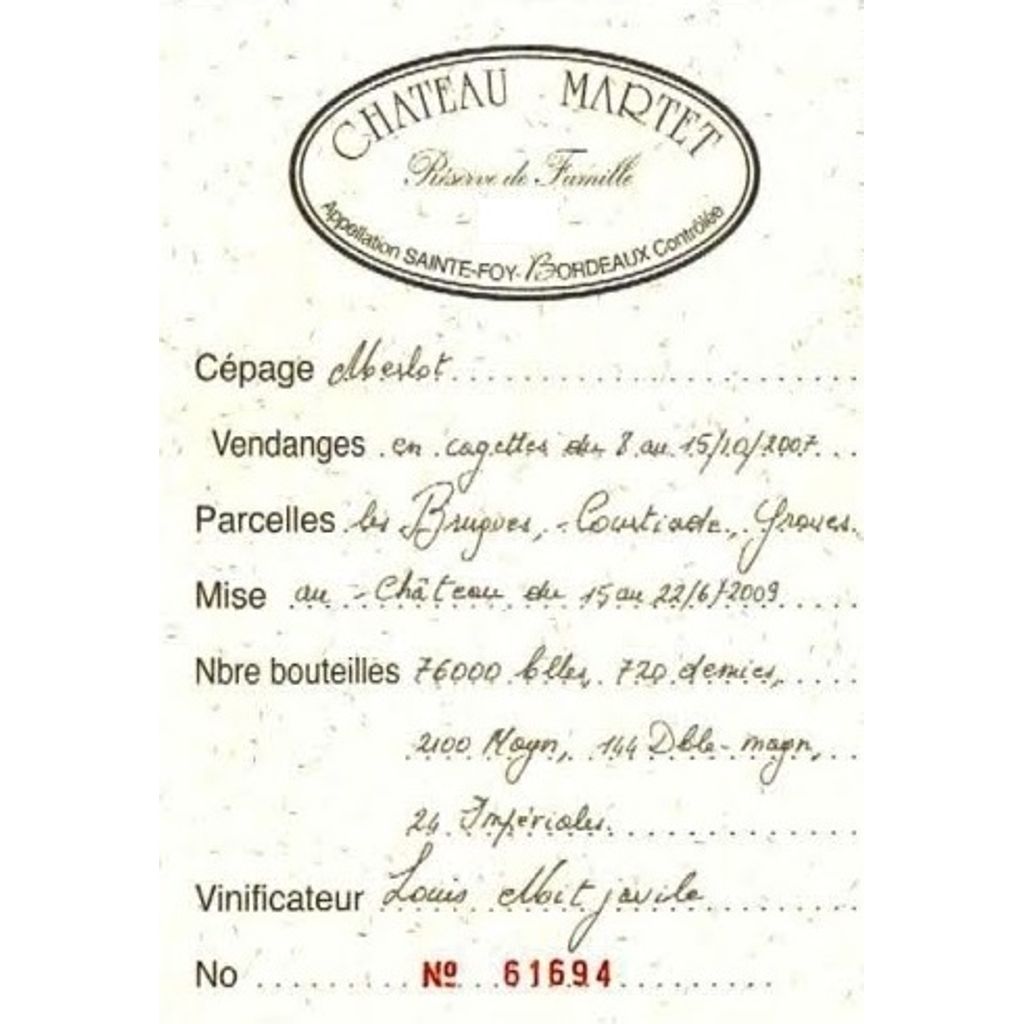 CHATEAU MARTET
Réserve de Famille
Appellation SAINTE-FOY-BORDEAUX Contrôlée
Cépage Merlot
Vendanges en cagettes du 8 au 15/10/2007
Parcelles les Brugues, Coustiade, Graves
Mise au Château du 15 au 22/6/2009
Nbre bouteilles 76000 blles, 720 demies,
2100 Magn, 144 Dble-magn,
24 Impériales
Vinificateur Louis Mitjavile
No Nº 61694